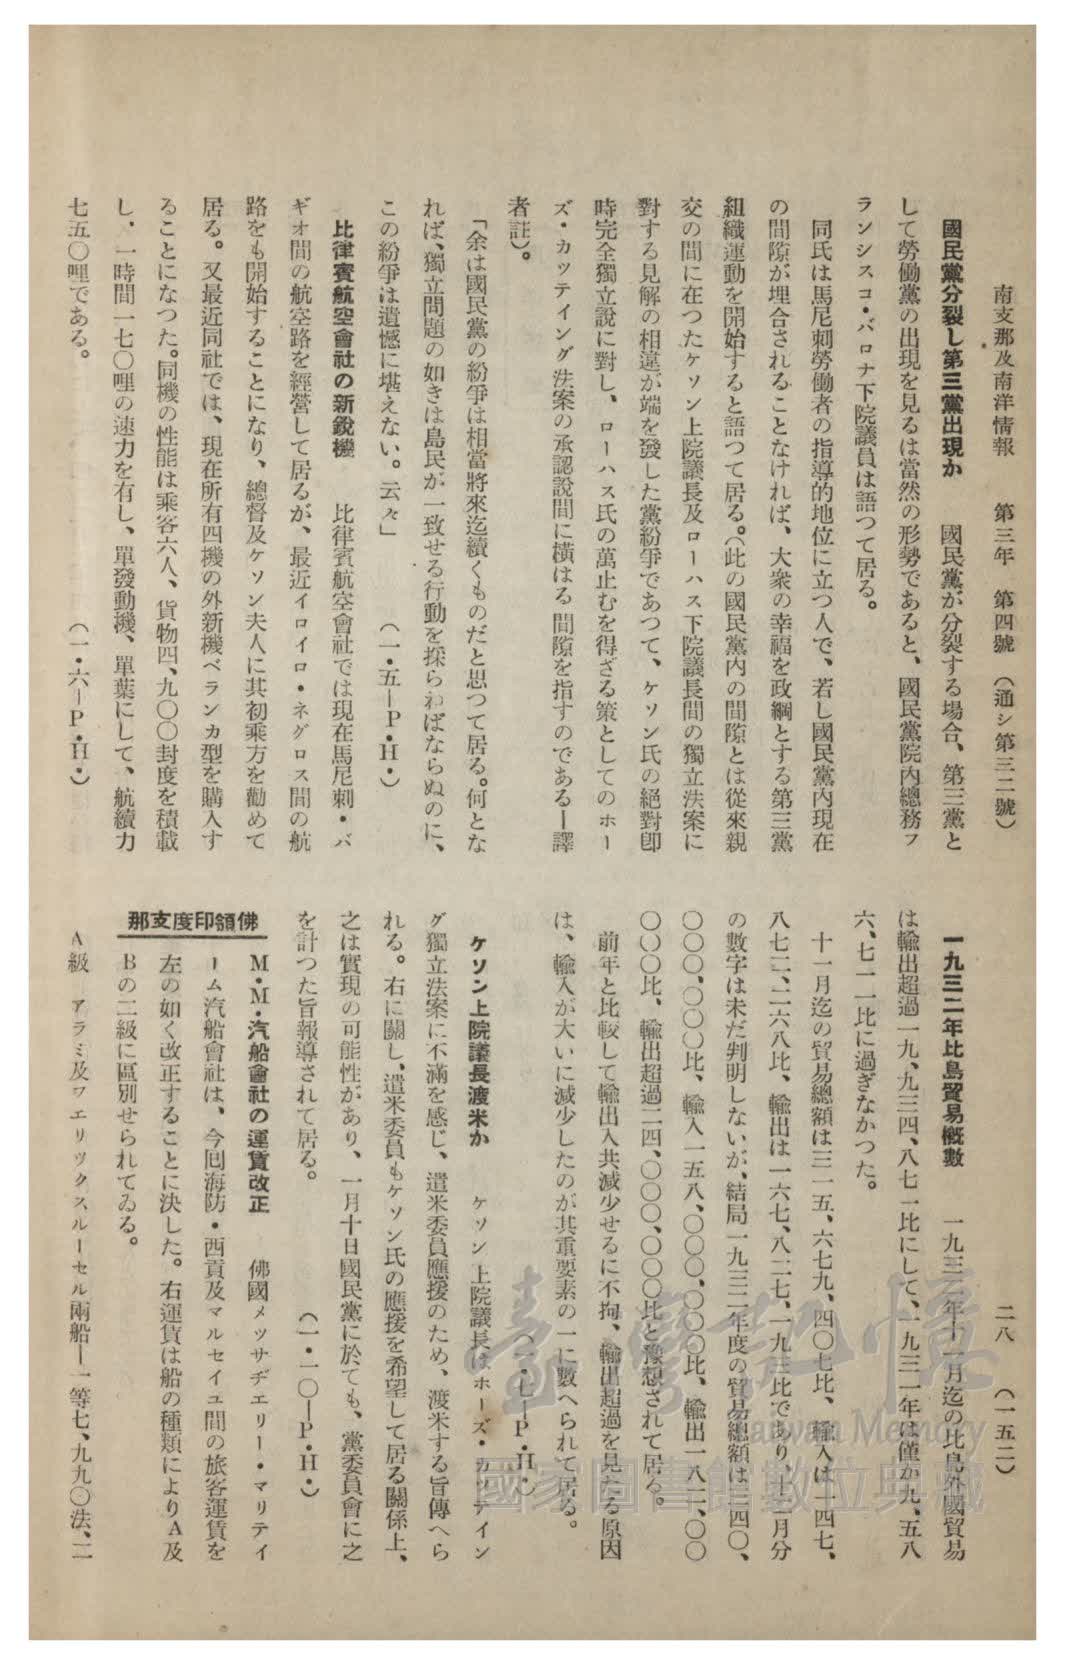 南支那及南洋情報　第三年　第四號　（通シ第三二號）　二八　（一五二）
國民黨分裂し第三黨出現か　國民黨が分裂する場合、第三黨と
して勞働黨の出現を見るは當然の形勢であると、國民黨院內總務フ
ランシスコ・バロナ下院議員は語つて居る。
同氏は馬尼刺勞働者の指導的地位に立つ人で、若し國民黨內現在
の間隙が埋合されることなければ、大衆の幸福を政綱とする第三黨
組織運動を開始すると語つて居る。（此の國民黨內の間隙とは從來親
交の間に在つたケソン上院議長及ローハス下院議長間の獨立法案に
對する見解の相違が端を發した黨紛爭であつて、ケソン氏の絕對卽
時完全獨立說に對し、ローハス氏の萬止むを得ざる策としてのホー
ズ・カッティング法案の承認說間に橫はる間隙を指すのである―譯
者註）。
「余は國民黨の紛爭は相當將來迄續くものだと思つて居る。何とな
れば、獨立問題の如きは島民が一致せる行動を採らねばならぬのに、
この紛爭は遺憾に堪えない。云々」　（一・五―Ｐ・Ｈ・）
比律賓航空會社の新銳機　比律賓航空會社では現在馬尼刺・バ
ギオ間の航空路を經營して居るが、最近イロイロ・ネグロス間の航
路をも開始することになり、總督及ケソン夫人に其初乘方を勸めて
居る。又最近同社では、現在所有四機の外新機ベランカ型を購入す
ることになつた。同機の性能は乘客六人、貨物四、九〇〇封度を積載
し、一時間一七〇哩の速力を有し、單發動機、單葉にして、航續力
七五〇哩である。　（一・六―Ｐ・Ｈ・）
一九三二年比島貿易槪數　一九三二年十一月迄の比島外國貿易
は輸出超過一九、九三四、八七一比にして、一九三一年は僅か九、五八
六、七一一比に過ぎなかつた。
十一月迄の貿易總額は三一五、六七九、四〇七比、輸入は一四七、
八七二、二六八比、輸出は一六七、八二七、一九三比であり、十二月分
の數字は未だ判明しないが、結局一九三二年度の貿易總額は三四〇、
〇〇〇、〇〇〇比、輸入一五八、〇〇〇、〇〇〇比、輸出一八二、〇〇
〇〇〇比、輸出超過二四、〇〇〇、〇〇〇比と豫想されて居る。
前年と比較して輸出入共減少せるに不拘、輸出超過を見たる原因
は、輸入が大いに減少したのが其重要素の一に數へられて居る。
（一・七―Ｐ・Ｈ・）
ケソン上院議長渡米か　ケソン上院議長はホーズ・カッティン
グ獨立法案に不滿を感じ、遣米委員應援のため、渡米する旨傳へら
れる。右に關し、遣米委員もケソン氏の應援を希望して居る關係上、
之は實現の可能性があり、一月十日國民黨に於ても、黨委員會に之
を計つた旨報導されて居る。　（一・一〇―Ｐ・Ｈ・）
佛領印度支那
Ｍ・Ｍ・汽船會社の運賃改正　佛國メッサヂエリー・マリテイ
ーム汽船會社は、今囘海防・西貢及マルセイユ間の旅客運賃を
左の如く改正することに決した。右運賃は船の種類によりＡ及
Ｂの二級に區別せられてゐる。
Ａ級　アラミ及フエリックスルーセル兩船―一等七、九九〇法、二
臺灣記憶
Taiwan Memory
國家圖書館數位典藏